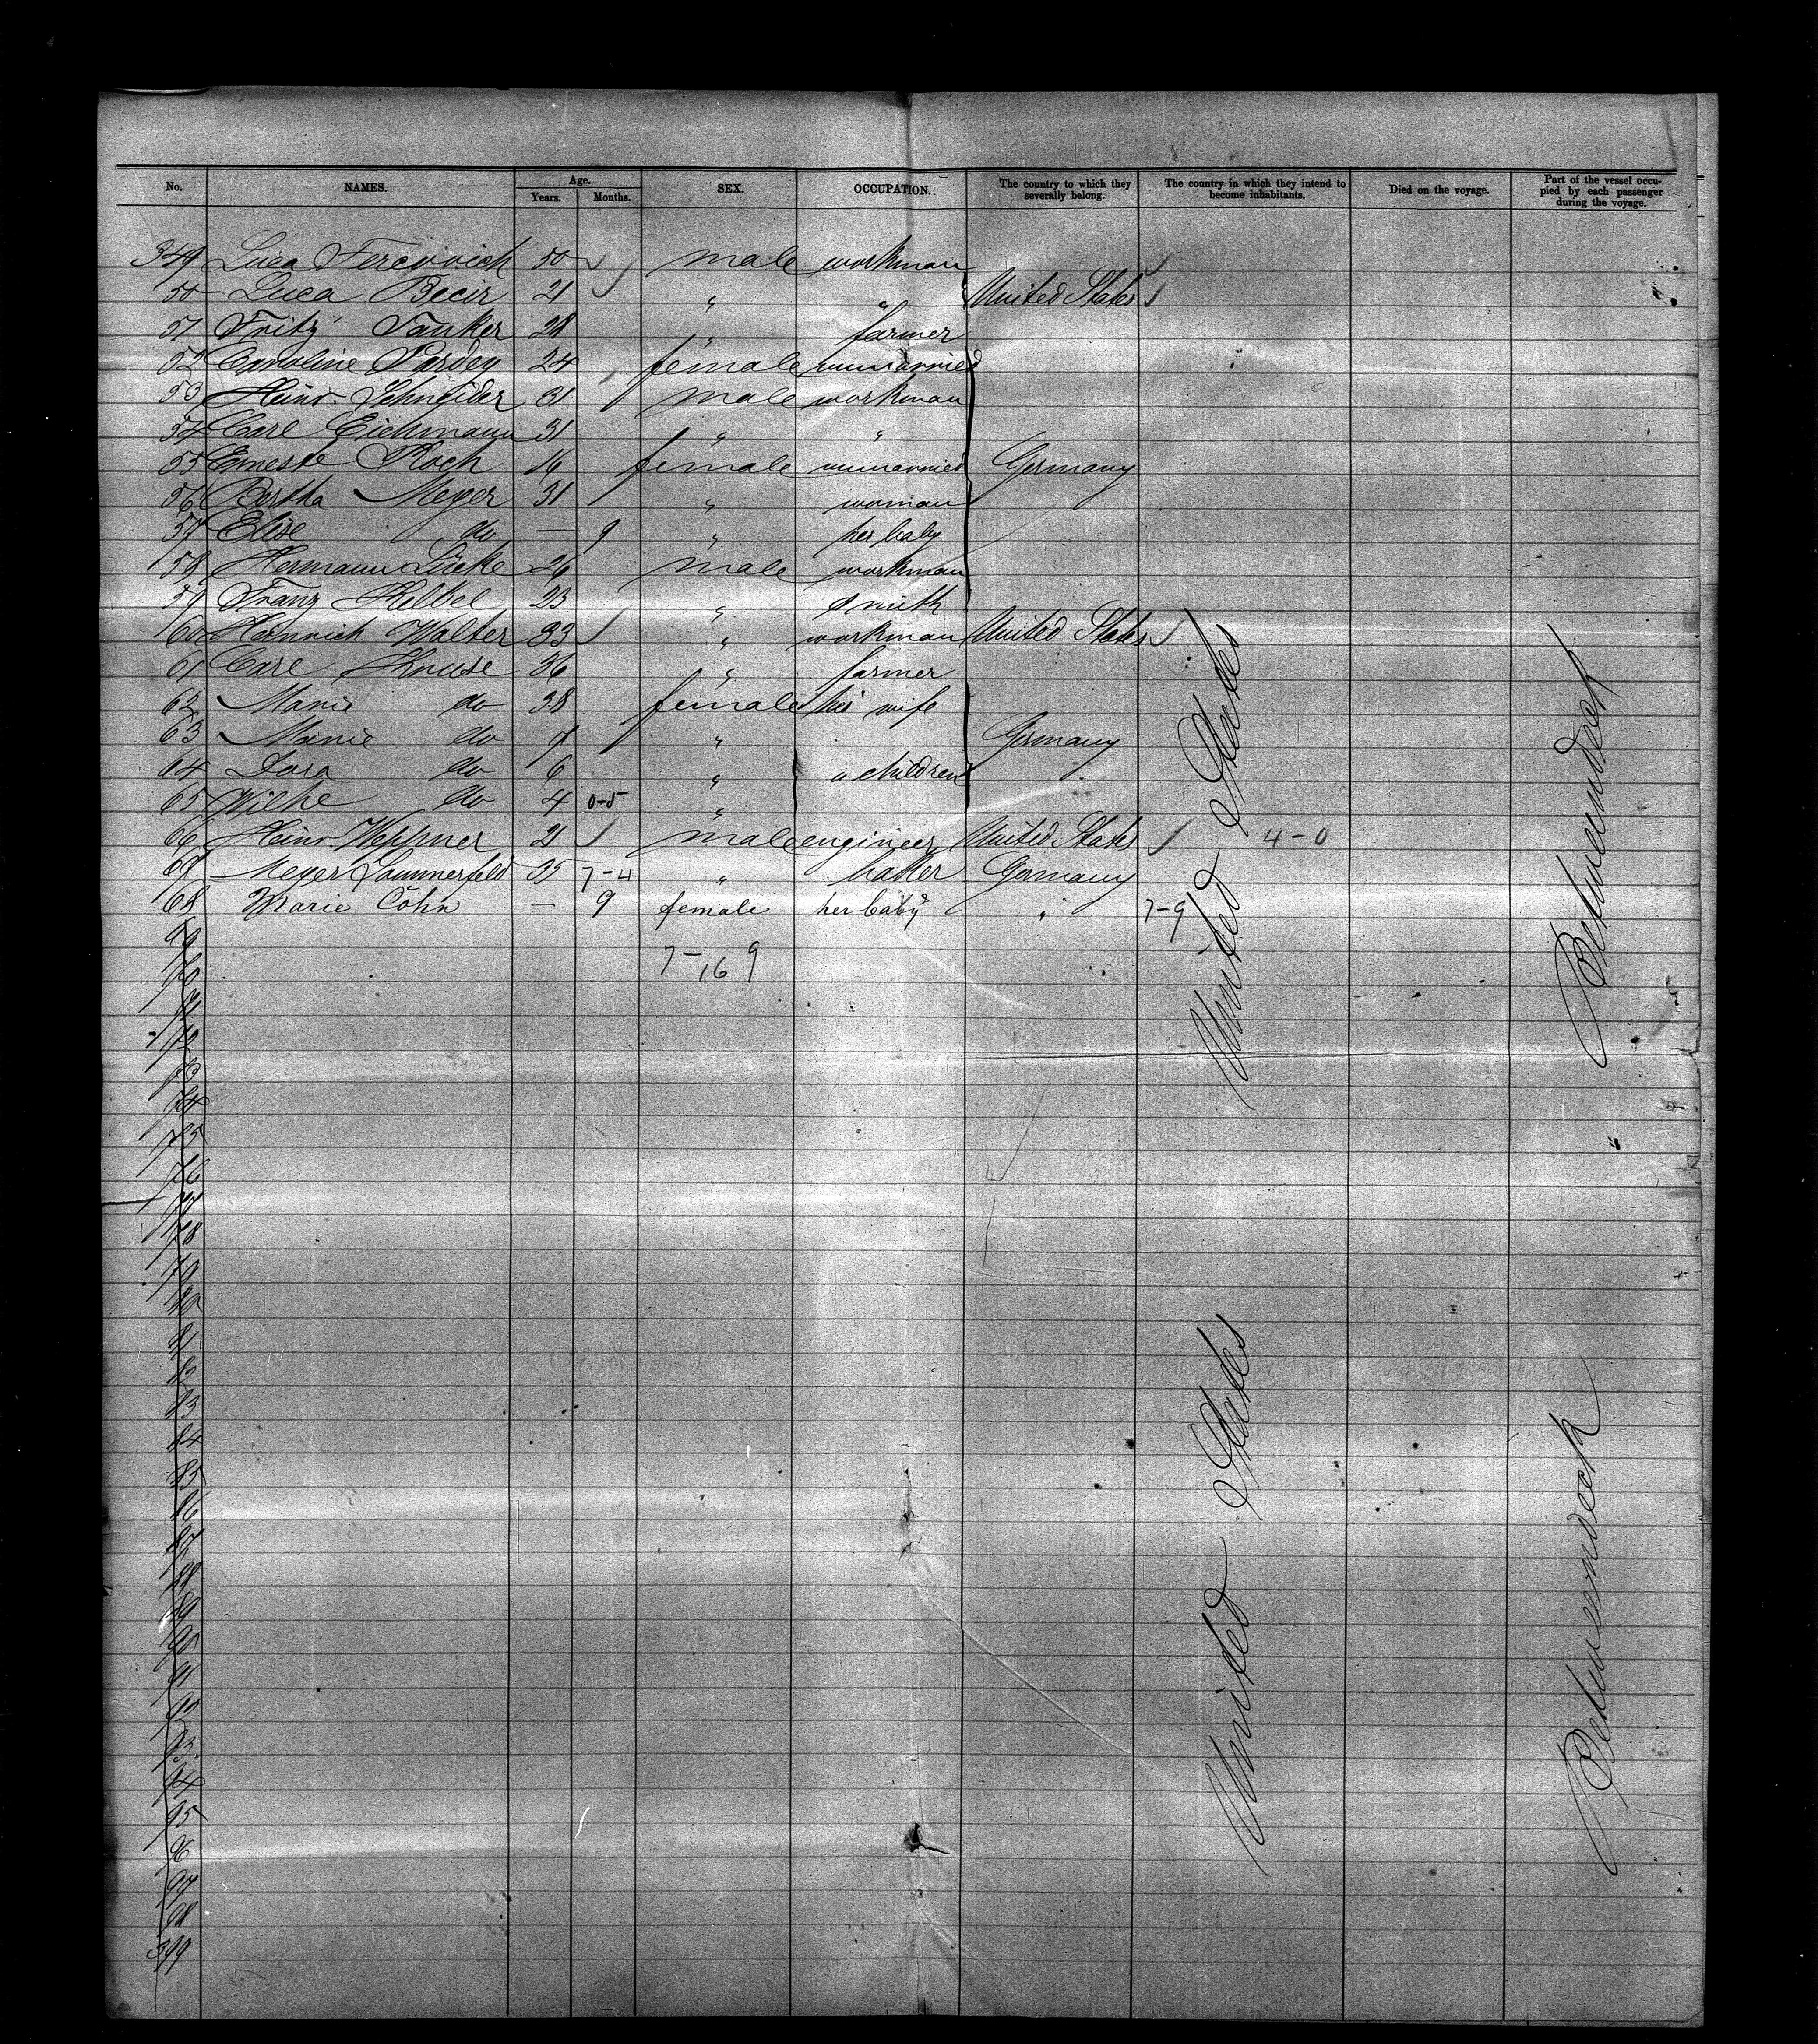 No. NAMES. Age. Years. Months. SEX. OCCUPATION. The country to which they severally belong. The country in which they intend to become inhabitants. Died on the voyage. Part of the vessel occupied by each passenger during the voyage.
349 Luca 50 male workman
50 Luca Becir 21 " " United States
51 Fritz Tanker 28 " farmer
52 Caroline Pardey 24 female unmarried
53 Heinr. Schneider 31 male workman
54 Carl Eichmann 31 " "
55 Erneste Koch 16 female unmarried Germany
56 Bertha Meyer 31 " woman
57 Elise do — 9 " her baby
58 Hermann Lücke 26 male workman
59 Franz 23 " smith
60 Heinrich Walter 33 " workman United States
61 Carl Knuse 36 " farmer
62 Marie do 38 female his wife
63 Minie do 7 " Germany
64 Dora do 6 " children
65 Wilhe do 4 0-5 "
66 Heinr. Weppner 21 male engineer United States 4-0
67 Meyer Sommerfeld 35 7-4 " baker Germany
68 Marie Cohn — 9 female her baby " 7-9
7-16 9
69
70
71
72
73
74
75
76
77
78
79
80
81
82
83
84
85
86
87
88
89
90
91
92
93
94
95
96
97
98
399
United States
Betweendeck
United States
Betweendeck